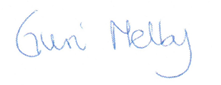 Guri Melby